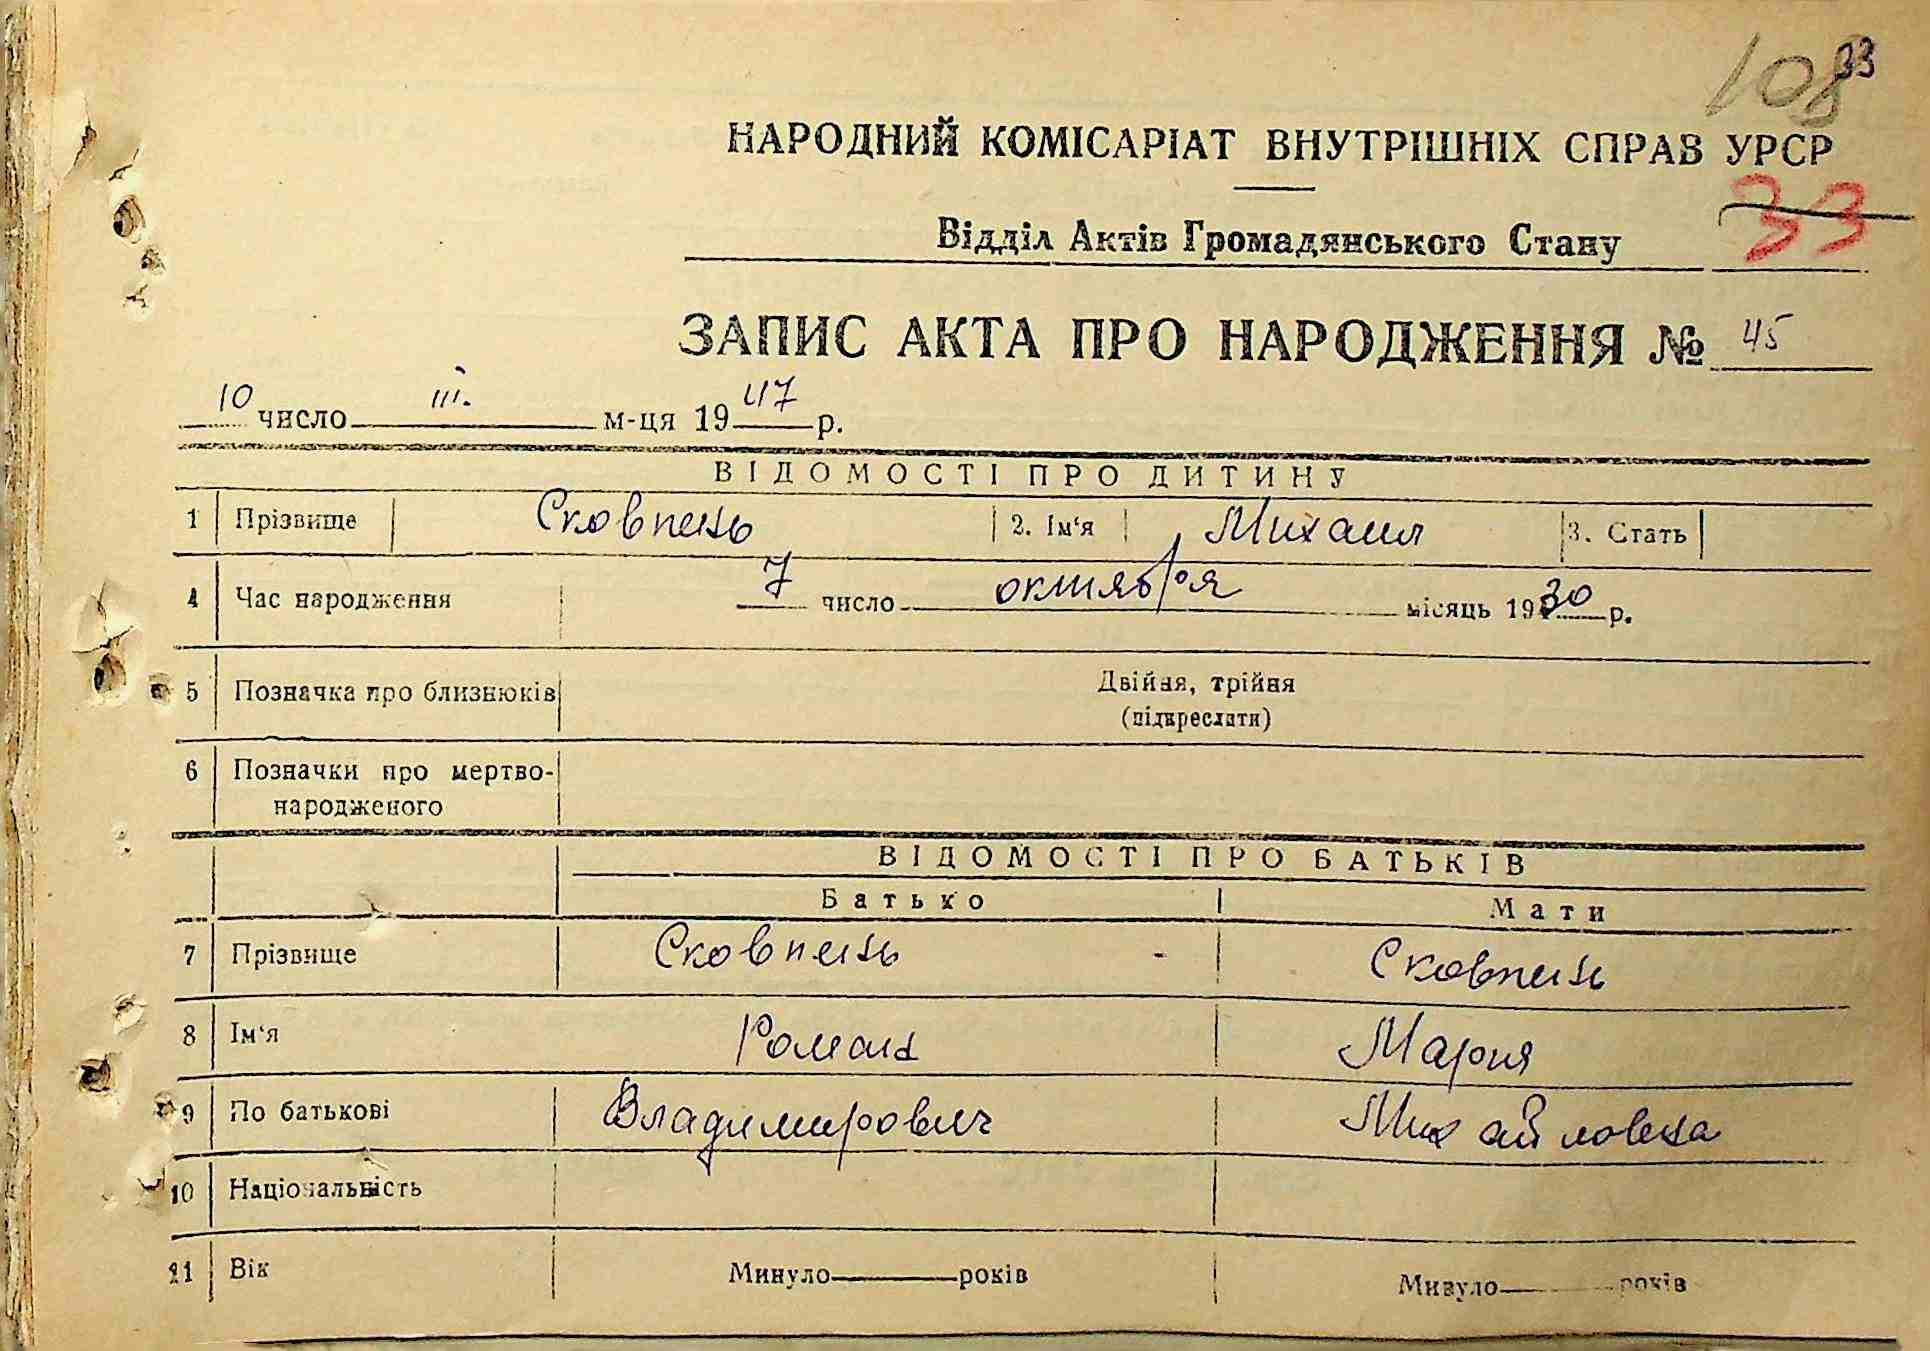 108 33
НАРОДНИЙ КОМІСАРІАТ ВНУТРІШНІХ СПРАВ УРСР
33
Відділ Актів Громадянського Стану
ЗАПИС АКТА ПРО НАРОДЖЕННЯ № 45
10 число III. м-ця 1947 р.
ВІДОМОСТІ ПРО ДИТИНУ
1 Прізвище Сковпень 2. Ім‘я Михаил 3. Стать
4 Час народження 7 число октября місяць 1930 р.
5 Позначка про близнюків Двійня, трійня
(підкреслати)
6 Позначки про мертво-
народженого
ВІДОМОСТІ ПРО БАТЬКІВ
Батько Мати
7 Прізвище Сковпень Сковпень
8 Ім‘я Роман Мария
9 По батькові Владимирович Михайловна
10 Національність
11 Вік Минуло років Минуло років